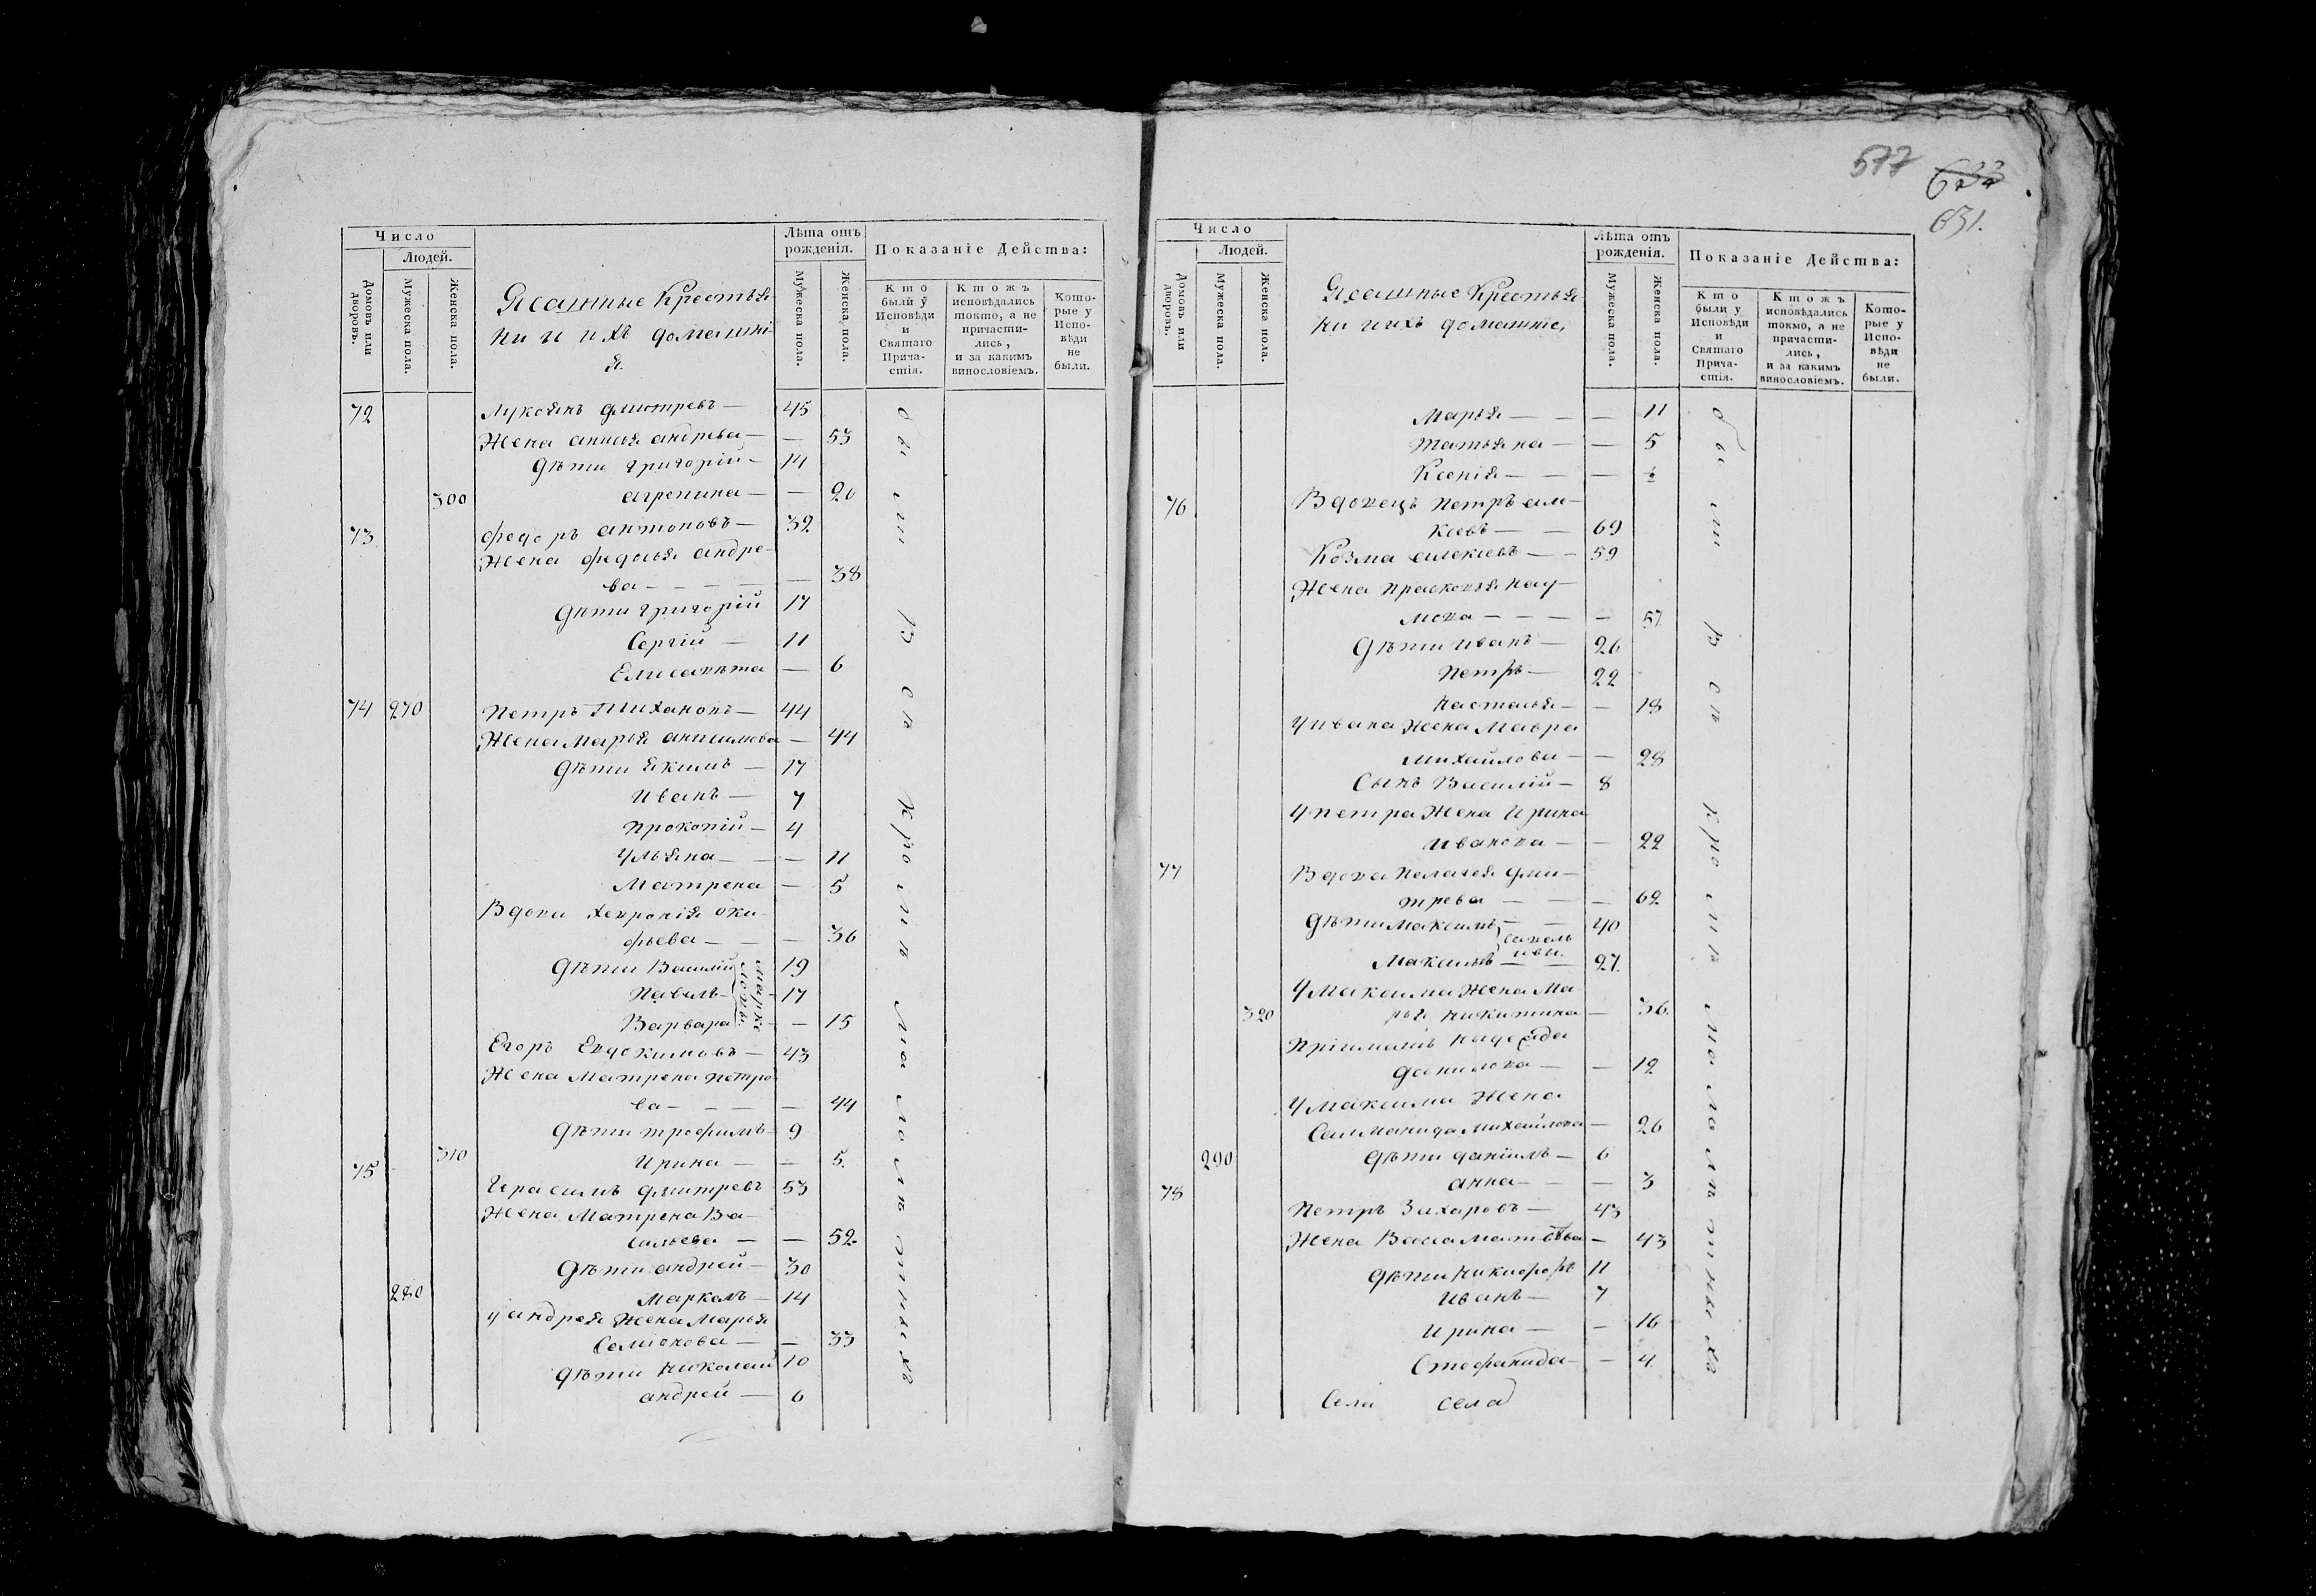 577
633
631.
Число
Людей.
Домовъ или дворовъ.
Мужеска пола.
Женска пола.
Ясашные Крестья-
ни и ихъ домашнi-
я.
Лѣта отъ рожденія.
Мужеска пола.
Женска пола.
Показаніе Действа:
Кто были у Исповѣди и Святаго Причастія.
Ктожъ исповѣдались токмо, а не причастились, и за какимъ винословіемъ.
Которые у Исповѣди не были.
72 Лукоянъ Дмитревъ — 45
Жена анисья андрева — — 53
Дѣти григорій — 14
300 агрепина — — 20
73 Федоръ антоновъ — 32
Жена Федосья андре-
ва — — — — 38
Дѣти григорій 17
Сергій — 11
Елисавѣта — 6
74 270 Петръ Тихановъ — 44
Жена Марья анисимова — 44
Дѣти якимъ — 17
Иванъ — 7
Прокопій — 4
Ульяна — — — 11
Матрена — 5
Вдова
фьева — — — 36
Дѣти Василій 19
Павелъ — 17
Варвара — 15
Марковы
Егоръ Евдокимовъ — 43
Жена Матрена петро-
ва — — — — 44
Дѣти трофимъ — 9
310 Ирина — — 5.
75 Герасимъ Дмитревъ 53
Жена Матрена Ва-
сильева — — 52
Дѣти андрей — 30
280 Маркелъ — 14
у андрея Жена Марья
Семіонова — — 33
Дѣти Николай 10
андрей — 6
были въ окромѣ малолѣтныхъ
Число
Людей.
Домовъ или дворовъ.
Мужеска пола.
Женска пола.
Ясашные Крестья-
ни и ихъ домашніе,
Лѣта отъ рожденія.
Мужеска пола.
Женска пола.
Показаніе Действа:
Кто были у Исповѣди и Святаго Причастія.
Ктожъ исповѣдались токмо, а не причастились, и за какимъ винословіемъ.
Которые у Исповѣди не были.
Марья — — — 11
Татьяна — — 5
Ксенія — — —
76 Вдовецъ Петръ але-
ксіевъ — — 69
Козма алексіевъ — — 59
Жена Прасковья нау-
мова — — — — 57.
Дѣти Иванъ — 26
Петръ — 22
Настасья — — 18
У ивана Жена Мавра
Михайлова — — 28
Сынъ Василій — 8
У петра Жена Ирина
Иванова — — 22
77 Вдова Пелагея Дми-
трева — — — 62
Дѣти Максимъ — — 40
Савель
ивы.
Максимъ — — 27.
У Максима Жена Ма-
320 рья Никитина — 36.
Пріимышъ надежда
Данилова — — 12
У Максима Жена
Саламанида Михайлова — 26
290 Дѣти Даніилъ — 6
анна — — — 3
78 Петръ Захаровъ — 43
Жена Васса Матвѣва — 43
Дѣти Никифоръ 11
Иванъ — 7
Ирина — — 16
Стефанида — — 4
Села села
были въ окромѣ малолѣтныхъ